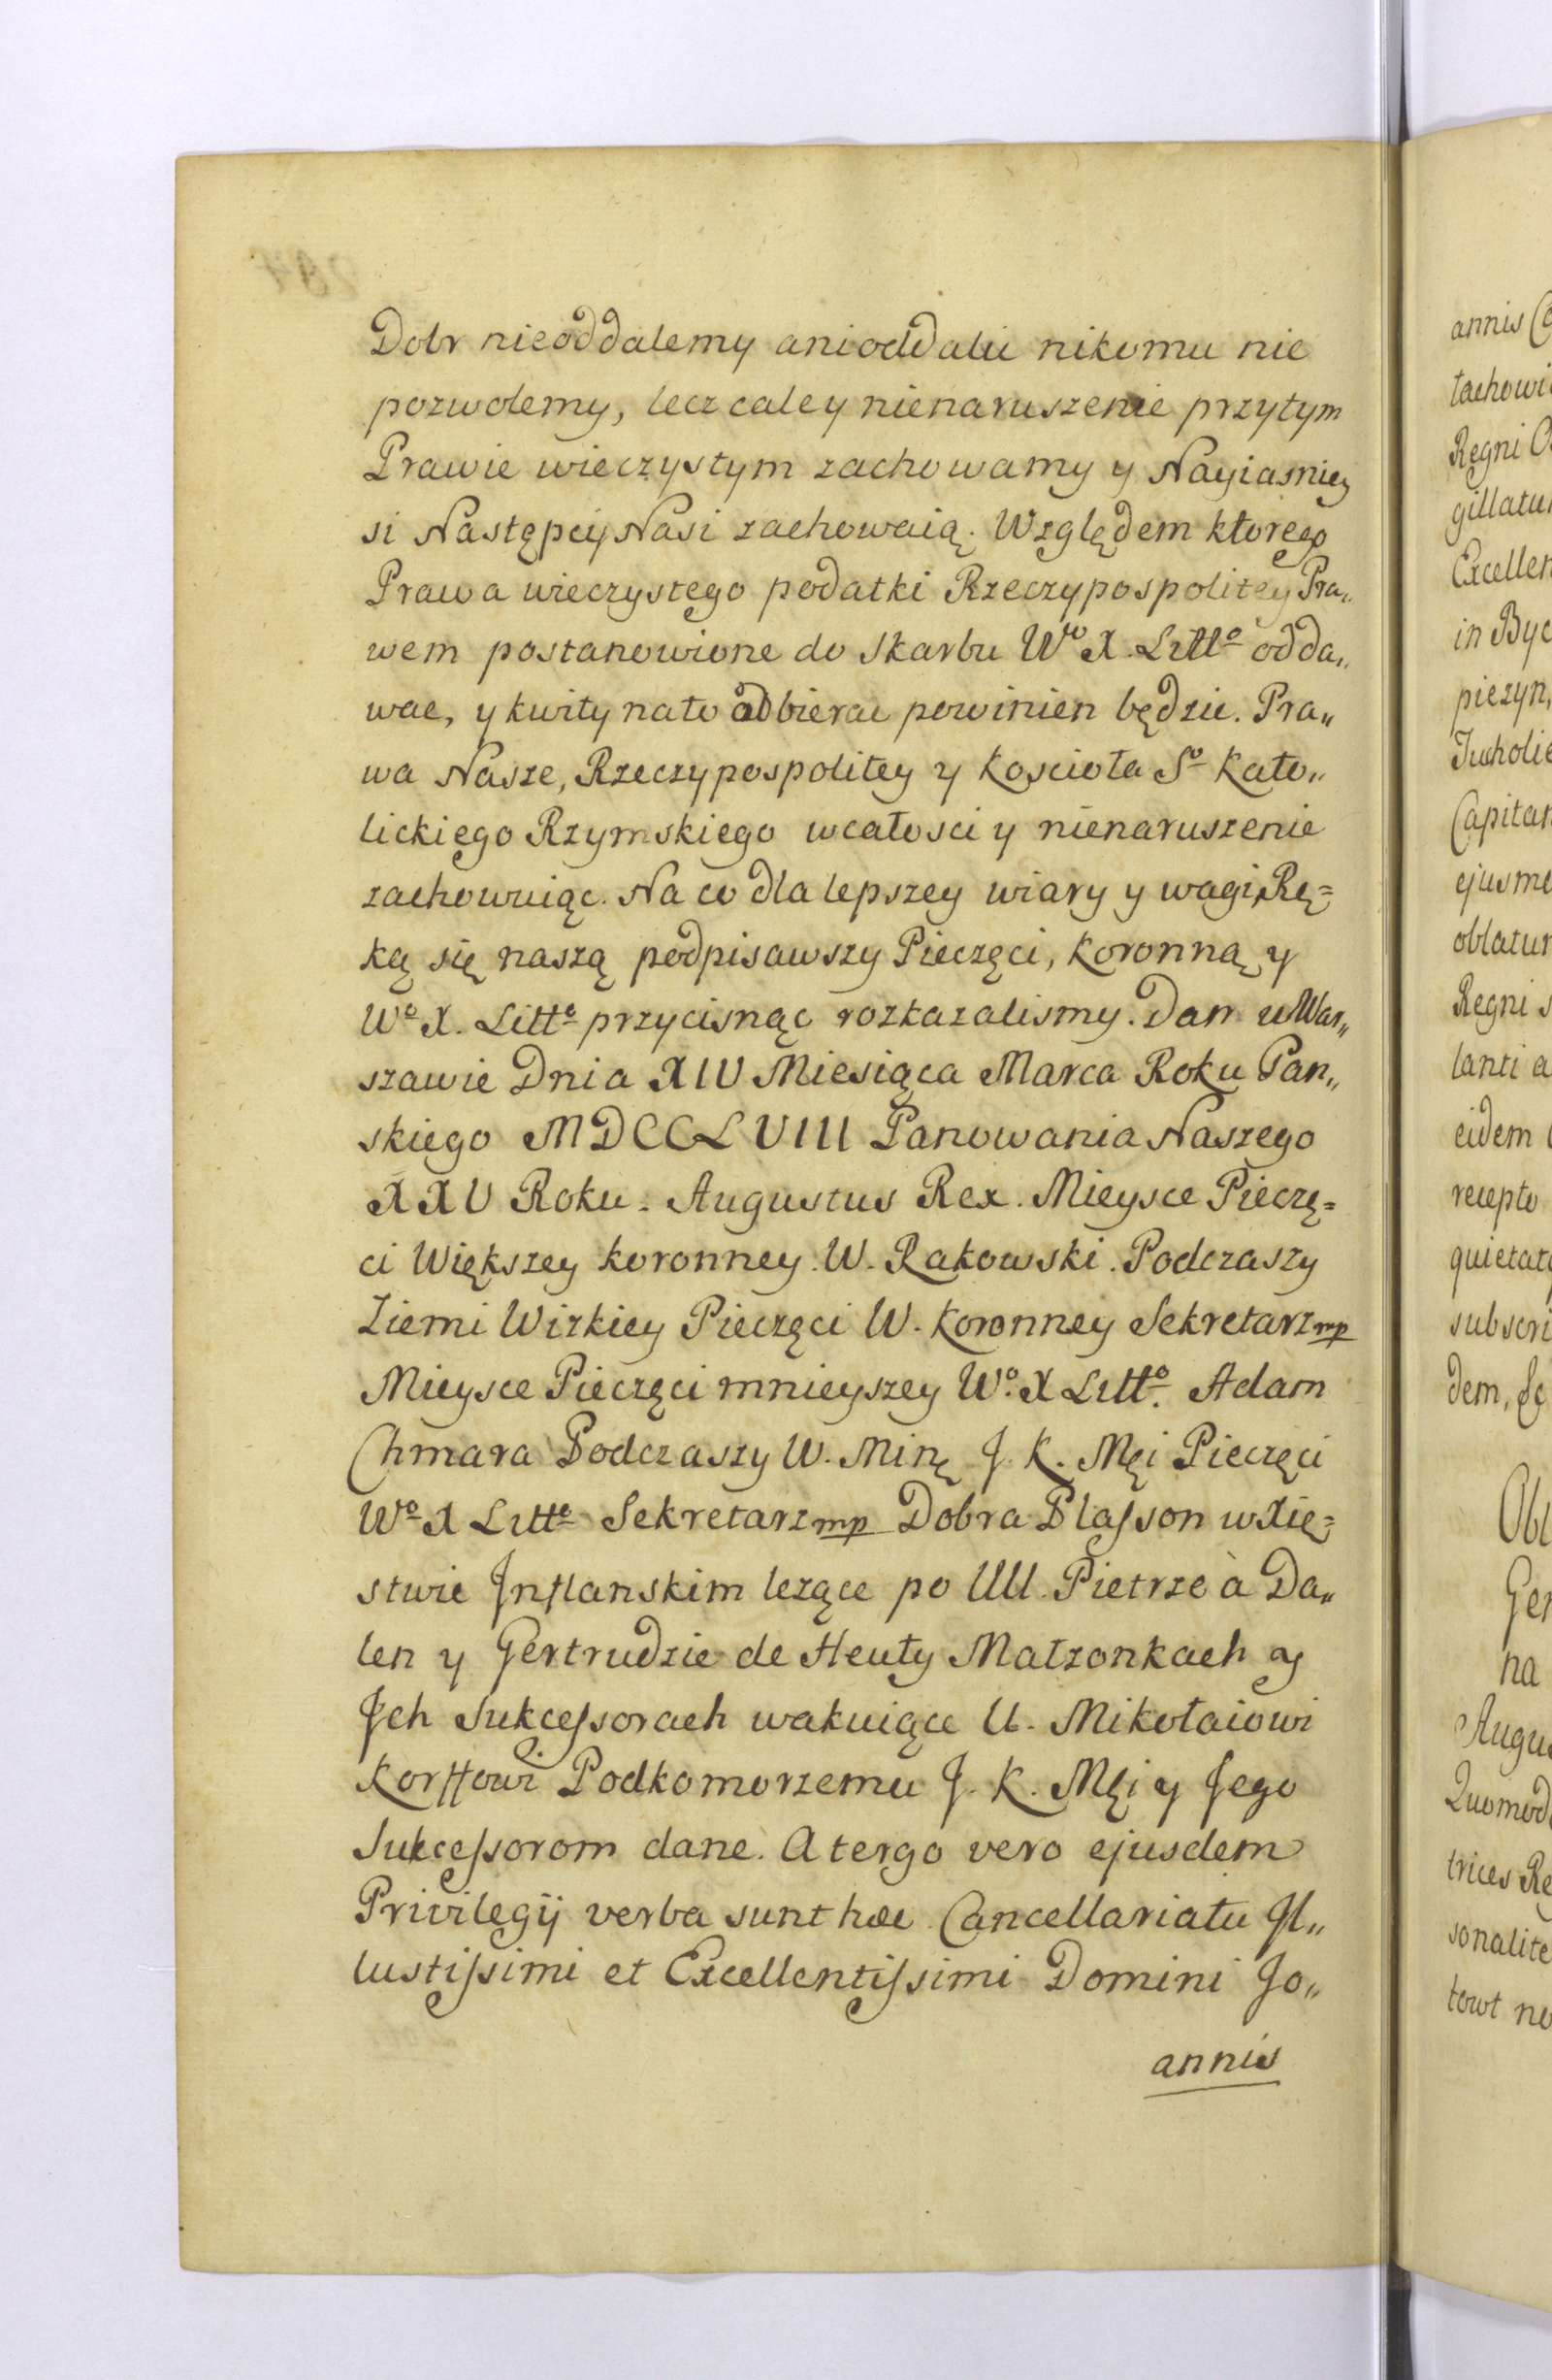 Dobr nieoddalemy anioddalić nikomu nie
pozwolemy, lecz cale y nienaruszenie przytym
Prawie wieczystym zachowamy y Nayiasniey
si Następcy Nasi zachowaią. Względem ktorego
Prawa wieczystego podatki Rzeczypospolitey Pra„
wem postanowione do Skarbu Wo X. Litto odda„
wac, y kwity nato odbierac powinien będzie. Pra„
wa Nasze, Rzeczypospolitey y Koscioła So Kato„
lickiego Rzymskiego wcałosci y nienaruszenie
zachowuiąc. Na co dla lepszey wiary y wagi Rę=
ką się naszą podpisawszy Pieczęci, Koronną y
Wo X. Litto przycisnąc rozkazalismy. Dan w War„
szawie Dnia XIV Miesiąca Marca Roku Pan„
skiego MDCCLVIII Panowania Naszego
XXV Roku. Augustus Rex. Mieysce Pieczę=
ci Większey koronney. W. Rakowski. Podczaszy
Ziemi Wizkiey Pieczęci W. Koronney Sekretarz mp
Mieysce Pieczęci mnieyszey Wo. X Litto. Adam
Chmara Podczaszy W. Minę J. K. Męi Pieczęci
Wo X Litto Sekretarz mp Dobra Plasson w Xię=
stwie Inflanskim lezące po UU. Pietrze à Da„
len y Gertrudzie de Heuty Matzonkach y
Ich Sukcessorach wakuiące U. Mikołaiowi
Korffowi Podkomorzemu J. K. Męi y Jego
Sukcessorom dane. A tergo vero ejusdem
Privilegij verba sunt hæc Cancellariatu Il„
lustissimi et Excellentissimi Domini Jo„
annis
annis
tachowi
Regni
gillatu
Excellen
in Byc
piezyn,
Tucholie
Capitan
ejusmo
oblatur
Regni s
lanti a
eidem
recepto
quietat
subscri
dem, &
Obl
Ger
na
Augu
Quomod
trices Re
sonalite
towt ne